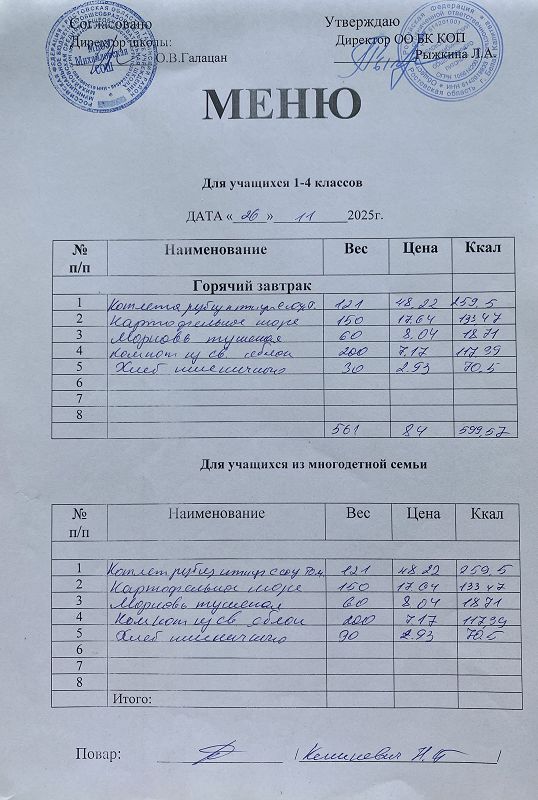 Согласовано Утверждаю
Директор школы: Директор ОО БК КОП
О.В.Галацан Рыжкина Л.А.
МЕНЮ
Для учащихся 1-4 классов
ДАТА « 26 » 11 2025г.
№ п/п Наименование Вес Цена Ккал
Горячий завтрак
1 Котлета 121 48,22 259,5
2 Картофельное пюре 150 17,64 133 47
3 Морковь тушеная 60 8,04 18,71
4 Компот из св. яблок 200 7,17 117,99
5 Хлеб пшеничный 30 2.93 70,5
6
7
8
561 84 599,57
Для учащихся из многодетной семьи
№ п/п Наименование Вес Цена Ккал
1 Котлет 121 48,22 259,5
2 Картофельное пюре 150 17,64 133 47
3 Морковь тушеная 60 8,04 18 71
4 Компот из св яблок 200 7,17 117,99
5 Хлеб пшеничного 90 2.93 70,5
6
7
8
Итого:
Повар: